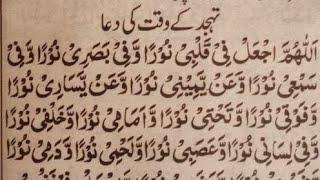 تہجد کے وقت کی دعا
اَللّٰهُمَّ اجْعَلْ فِيْ قَلْبِيْ نُوْرًا وَّفِيْ بَصَرِيْ نُوْرًا وَّفِيْ
سَمْعِيْ نُوْرًا وَّعَنْ يَّمِيْنِيْ نُوْرًا وَّعَنْ يَّسَارِيْ نُوْرًا
وَّفَوْقِيْ نُوْرًا وَّتَحْتِيْ نُوْرًا وَّاَمَامِيْ نُوْرًا وَّخَلْفِيْ نُوْرًا
وَّفِيْ لِسَانِيْ نُوْرًا وَّعَصَبِيْ نُوْرًا وَّلَحْمِيْ نُوْرًا وَّدَمِيْ نُوْرًا